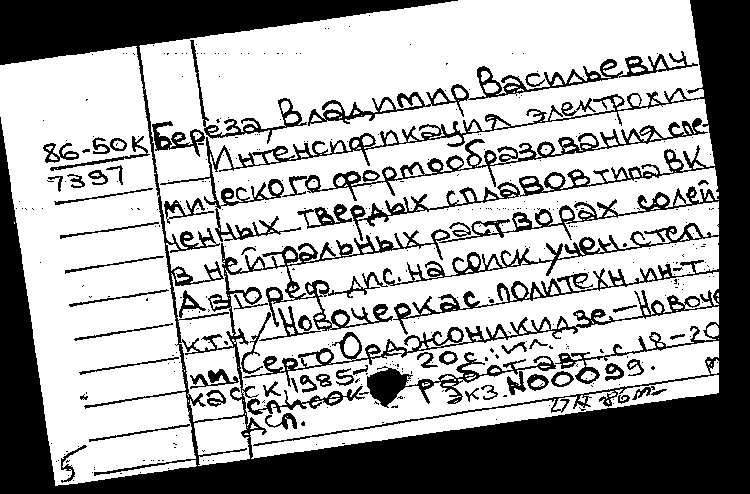 86-50К
7397
Берёза, Владимир Васильевич.
Интенсификация электрохи-
мического формообразования спе-
ченных твердых сплавов типа ВК
в нейтральных растворах солей:
Автореф. дис. на соиск. учен. степ.
к.т.н. / Новочеркас. политехн. ин-т
им. Серго Орджоникидзе. — Новоче
касск, 1985. — 20 с.: ил.
список работ авт.: с 18-20
ДСП. Экз. №00099.
5